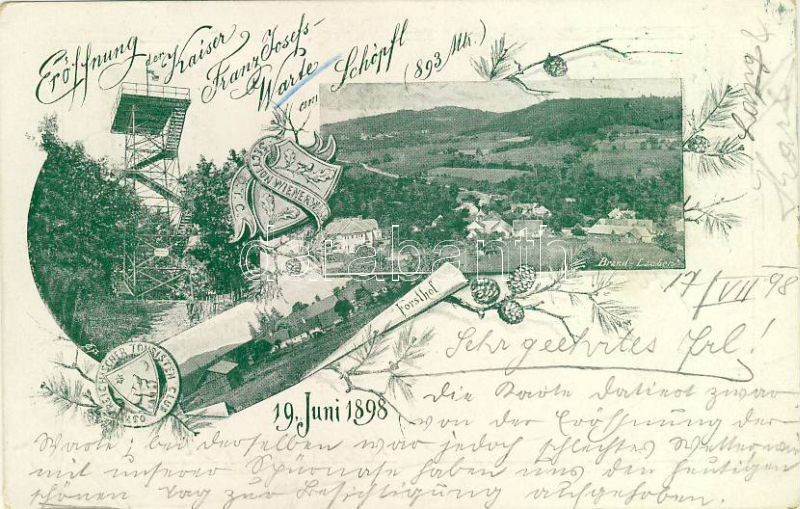 Eröffnung der Kaiser
Franz Josefs-
Warte
am Schöpfl
(893 Mt.)
SECTION WIENERWALD
Brand-Laaben
darabanth
Forsthof
ÖSTERREICHISCHER TOURISTEN CLUB
19. Juni 1898
17/VII 98
Sehr geehrtes Frl!
Die Karte datiert zwar
von der Eröffnung der
Warte; bei derselben war jedoch schlechtes Wetter, wir
mit unserer Spürnase haben uns den heutigen
schönen Tag zur Besichtigung aufgehoben.